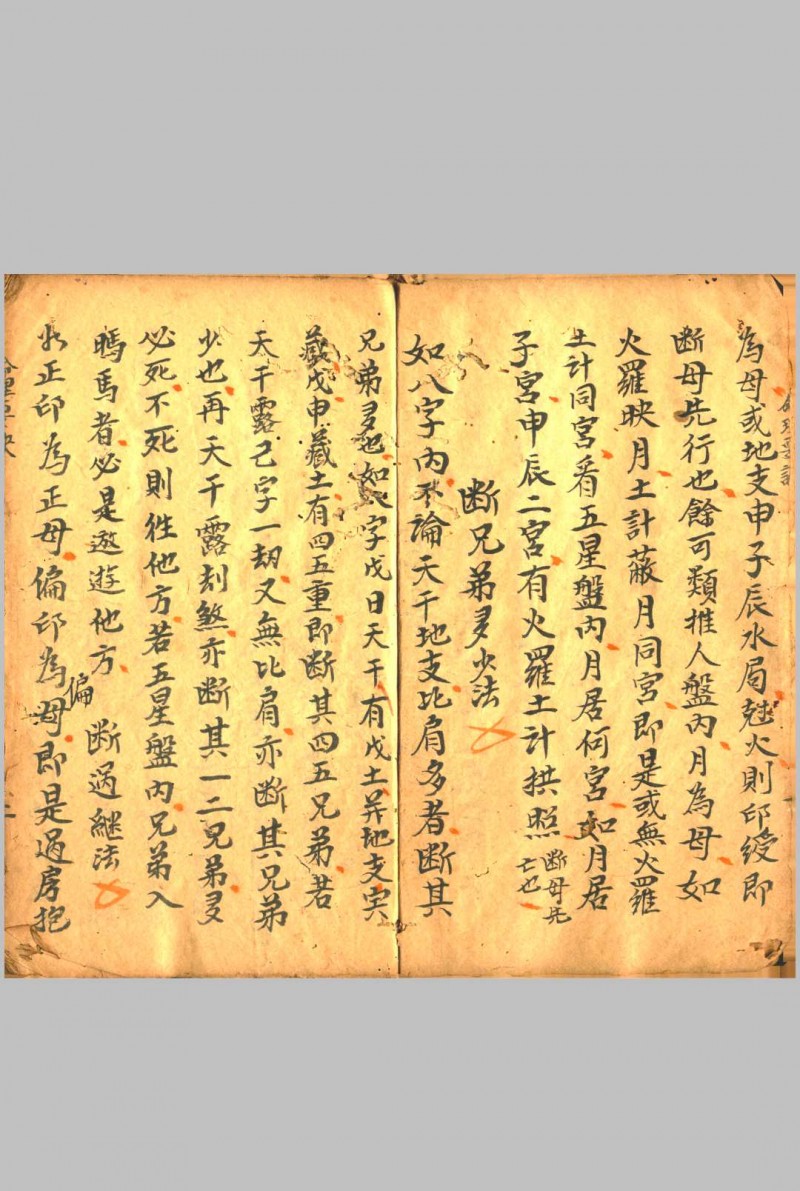 為母或地支申子辰水局尅火則印綬即
断母先行也餘可類推人盤內月為母如
火羅映月土計蔽月同宮即是或無火羅
土計同宮看五星盤內月居何宮如月居
子宮申辰二宮有火羅土計拱照断母先亡也
断兄弟多少法
如八字內不論天干地支比肩多者断其
兄弟多也如八字戊日天干有戊土并地支寅
藏戊申藏土有四五重即断其四五兄弟若
天干露己字一劫又無比肩亦断其兄弟
少也再天干露刦煞亦断其一二兄弟多
必死不死則往他方若五星盤內兄弟入
馬者必是遨遊他方 断過継法
正印為正母偏印為偏母即是過房抱